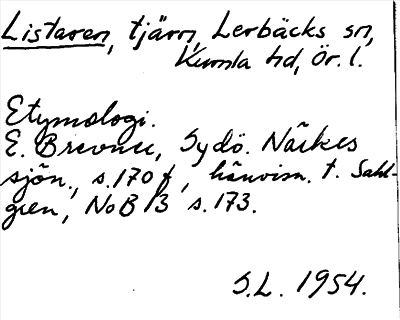 Listaren, tjärn, Lerbäcks sn,
Kumla hd, Ör. l.
Etymologi.
E. Brevner, Sydö. Närkes
sjön., s. 170 f, hänvisn. t. Sahl-
gren, NoB 13 s. 173.
S.L. 1954.